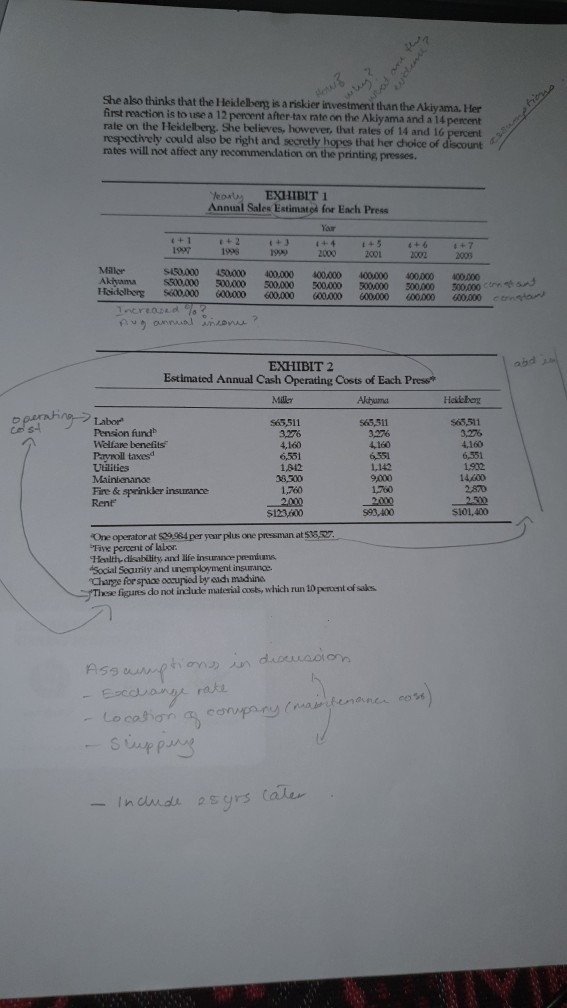 How?
why?
what are the
evidence?
assumptions
She also thinks that the Heidelberg is a riskier investment than the Akiyama. Her
first reaction is to use a 12 percent after-tax rate on the Akiyama and a 14 percent
rate on the Heidelberg. She believes, however, that rates of 14 and 16 percent
respectively could also be right and secretly hopes that her choice of discount
rates will not affect any recommendation on the printing presses.
Yearly EXHIBIT 1
Annual Sales Estimates for Each Press
Year
t + 1 t + 2 t + 3 t + 4 t + 5 t + 6 t + 7
1997 1998 1999 2000 2001 2002 2003
Miller $450,000 450,000 400,000 400,000 400,000 400,000 400,000
Akiyama $500,000 500,000 500,000 500,000 500,000 500,000 500,000 constant
Heidelberg $600,000 600,000 600,000 600,000 600,000 600,000 600,000 constant
Increased %?
Avg annual income?
add in
EXHIBIT 2
Estimated Annual Cash Operating Costs of Each Press
Miller Akiyama Heidelberg
operating cost
Labor a $65,511 $65,511 $65,511
Pension fund b 3,276 3,276 3,276
Welfare benefits c 4,160 4,160 4,160
Payroll taxes d 6,551 6,551 6,551
Utilities 1,842 1,142 1,932
Maintenance 38,500 9,000 14,600
Fire & sprinkler insurance 1,760 1,760 2,870
Rent e 2,000 2,000 2,500
$123,600 $93,400 $101,400
a One operator at $29,984 per year plus one pressman at $35,527.
b Five percent of labor.
c Health, disability, and life insurance premiums.
d Social Security and unemployment insurance.
e Charge for space occupied by each machine.
These figures do not include material costs, which run 10 percent of sales.
Assumptions in discussion
- Exchange rate
- Location of company (maintenance cost)
- Shipping
- Include 25 yrs later